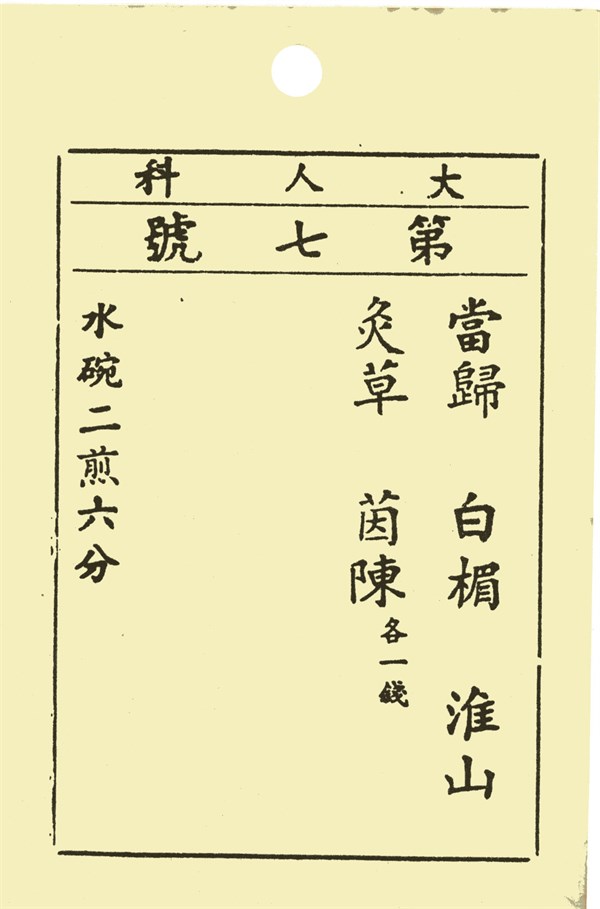 大人科
第七號
當歸 白楣 淮山
灸草 茵陳各一錢
水碗二煎六分